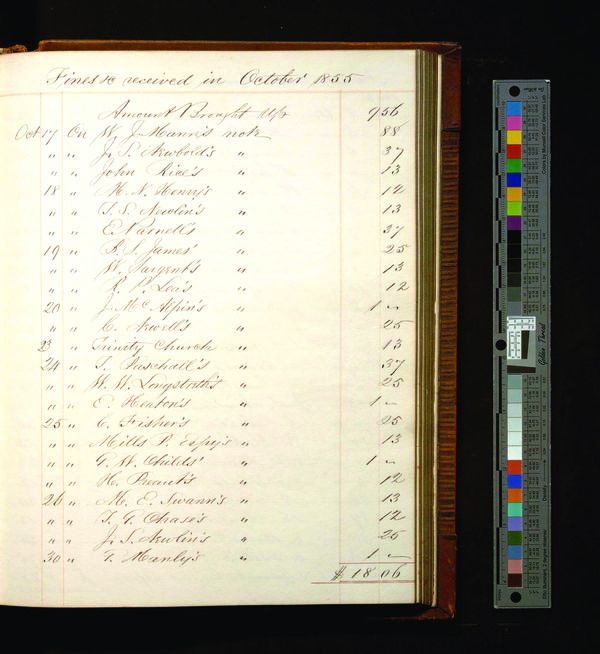 Fines &c received in October 1855
Amount Brought Up 9 56
Oct 17 On W. J. Mann's note 88
" " J. S. Newbold's " 37
" " John Rice's " 13
18 " M. N. Henry's " 12
" " T. S. Newlin's " 13
" " E. Varnell's " 37
19 " S. James' " 25
" " W. Sargent's " 13
" " R. P. Lea's " 12
20 " J. McAlpin's " 1 "
" " C. Newell's " 25
23 " Trinity Church " 13
24 " S. Paschall's " 37
" " W. W. Longstreth's " 25
" " E. Heaton's " 1 "
25 " C. Fisher's " 25
" " Mills P. Espy's " 13
" " G. W. Childs' " 1 "
" " H. " 12
26 " M. E. Swann's " 13
" " T. G. Chase's " 12
" " J. S. Newlin's " 25
30 " T. Manly's " 1 "
$ 18 06